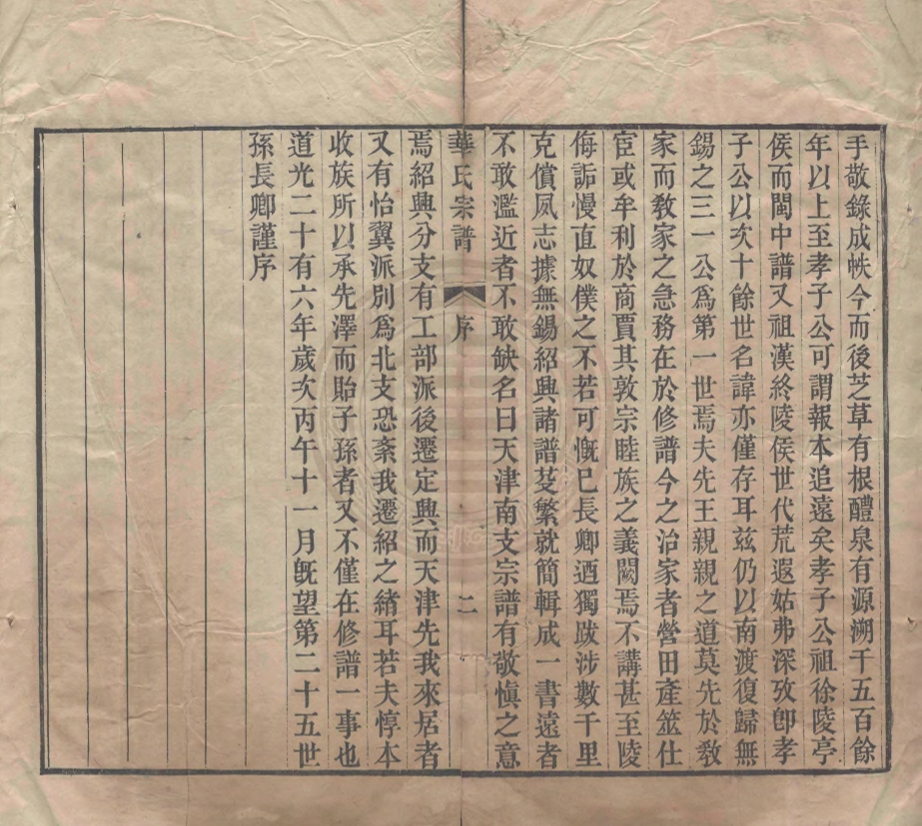 手敬錄成帙今而後芝草有根醴泉有源溯千五百餘
年以上至孝子公可謂報本追遠矣孝子公祖徐陵亭
侯而閩中譜又祖漢終陵侯世代荒遐姑弗深攷卽孝
子公以次十餘世名諱亦僅存耳玆仍以南渡復歸無
錫之三一公爲第一世焉夫先王親親之道莫先於敎
家而敎家之急務在於修譜今之治家者營田產筮仕
宦或牟利於商賈其敦宗睦族之義闕焉不講甚至陵
侮詬慢直奴僕之不若可慨已長卿迺獨跋涉數千里
克償夙志據無錫紹興諸譜芟繁就簡輯成一書遠者
不敢濫近者不敢缺名曰天津南支宗譜有敬愼之意
華氏宗譜 序 二
焉紹興分支有工部派後遷定興而天津先我來居者
又有怡翼派別爲北支恐紊我遷紹之緒耳若夫惇本
收族所以承先澤而貽子孫者又不僅在修譜一事也
道光二十有六年歲次丙午十一月旣望第二十五世
孫長卿謹序